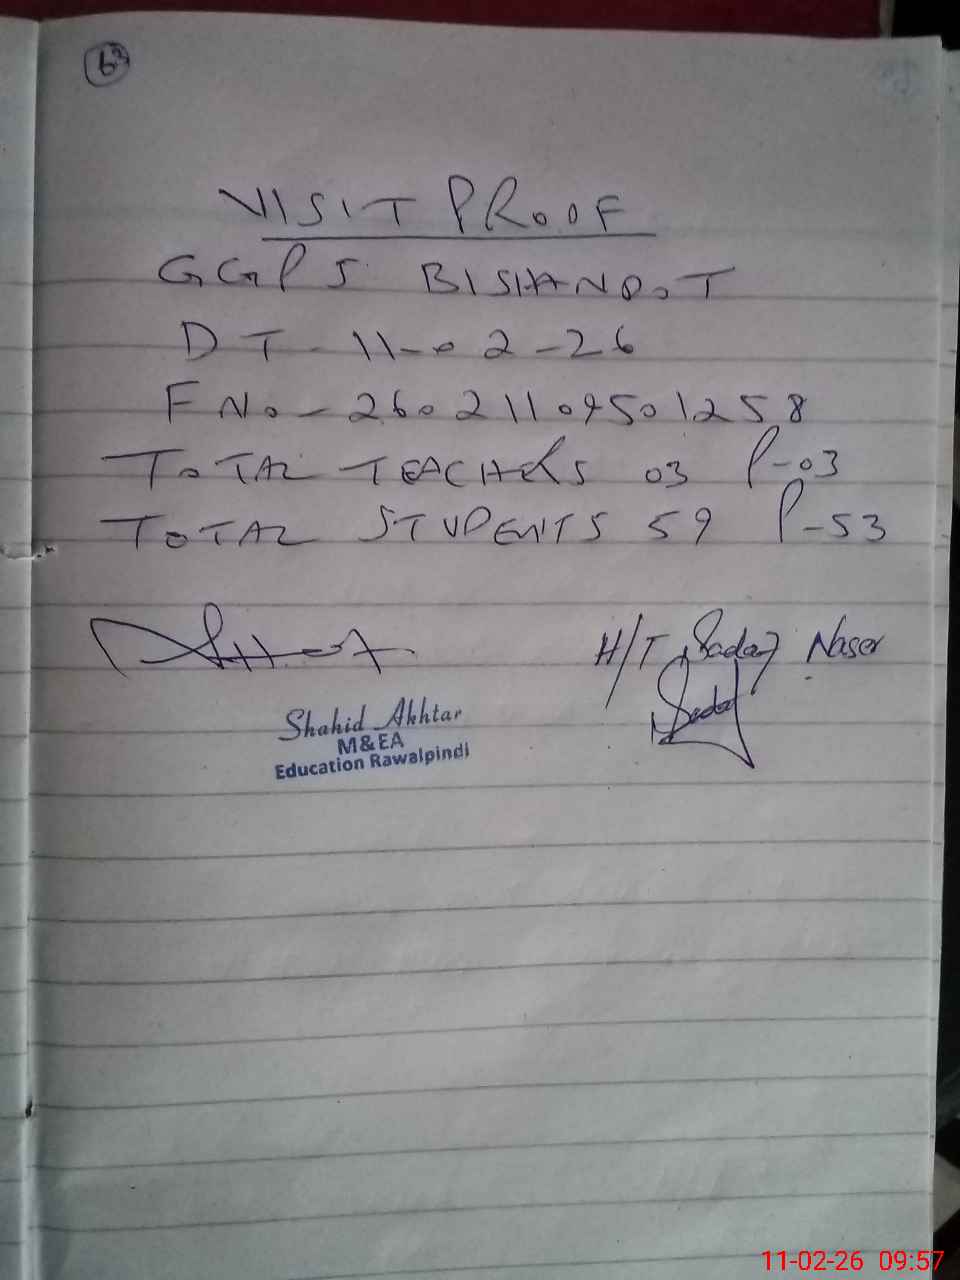 63
VISIT PROOF
GGPS BISHANDOT
DT - 11-02-26
F No - 26021109501258
TOTAL TEACHERS 03 P-03
TOTAL STUDENTS 59 P-53
H/T Sadaf Naser
Sadaf
Shahid Akhtar
M&EA
Education Rawalpindi
11-02-26 09:57